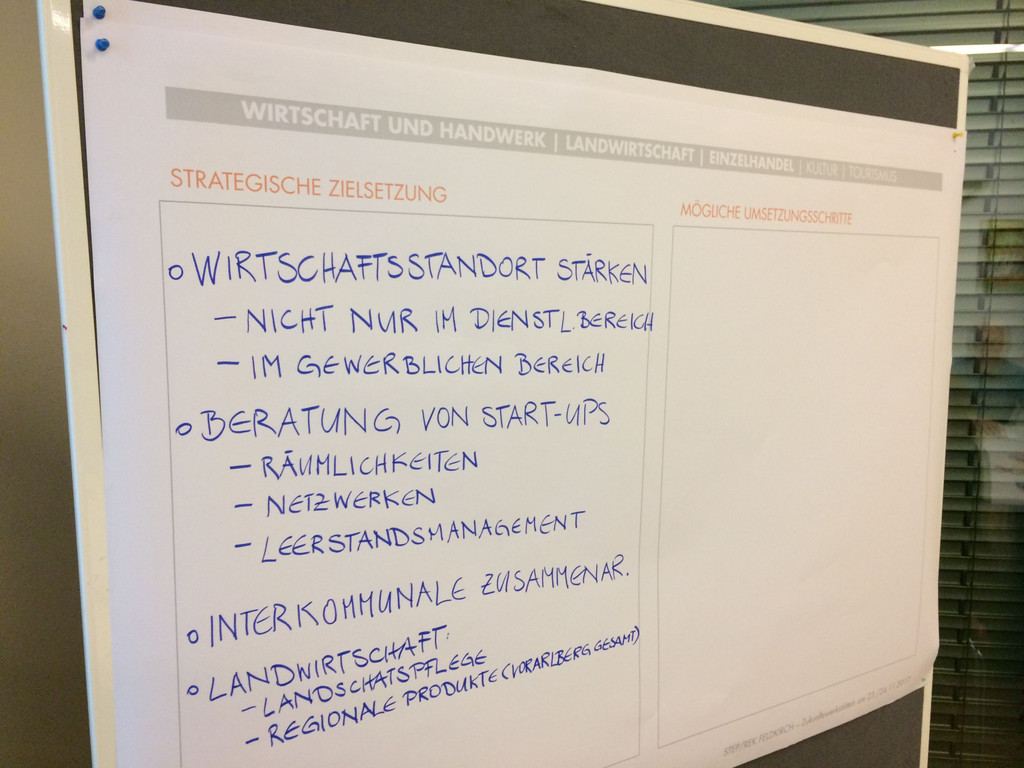 WIRTSCHAFT UND HANDWERK | LANDWIRTSCHAFT | EINZELHANDEL | KULTUR | TOURISMUS
STRATEGISCHE ZIELSETZUNG
o WIRTSCHAFTSSTANDORT STÄRKEN
– NICHT NUR IM DIENSTL.BEREICH
– IM GEWERBLICHEN BEREICH
o BERATUNG VON START-UPS
– RÄUMLICHKEITEN
– NETZWERKEN
– LEERSTANDSMANAGEMENT
o INTERKOMMUNALE ZUSAMMENAR.
o LANDWIRTSCHAFT:
– LANDSCHATSPFLEGE
– REGIONALE PRODUKTE (VORARLBERG GESAMT)
MÖGLICHE UMSETZUNGSSCHRITTE
STEP/REK FELDKIRCH – Zukunftswerkstätten am